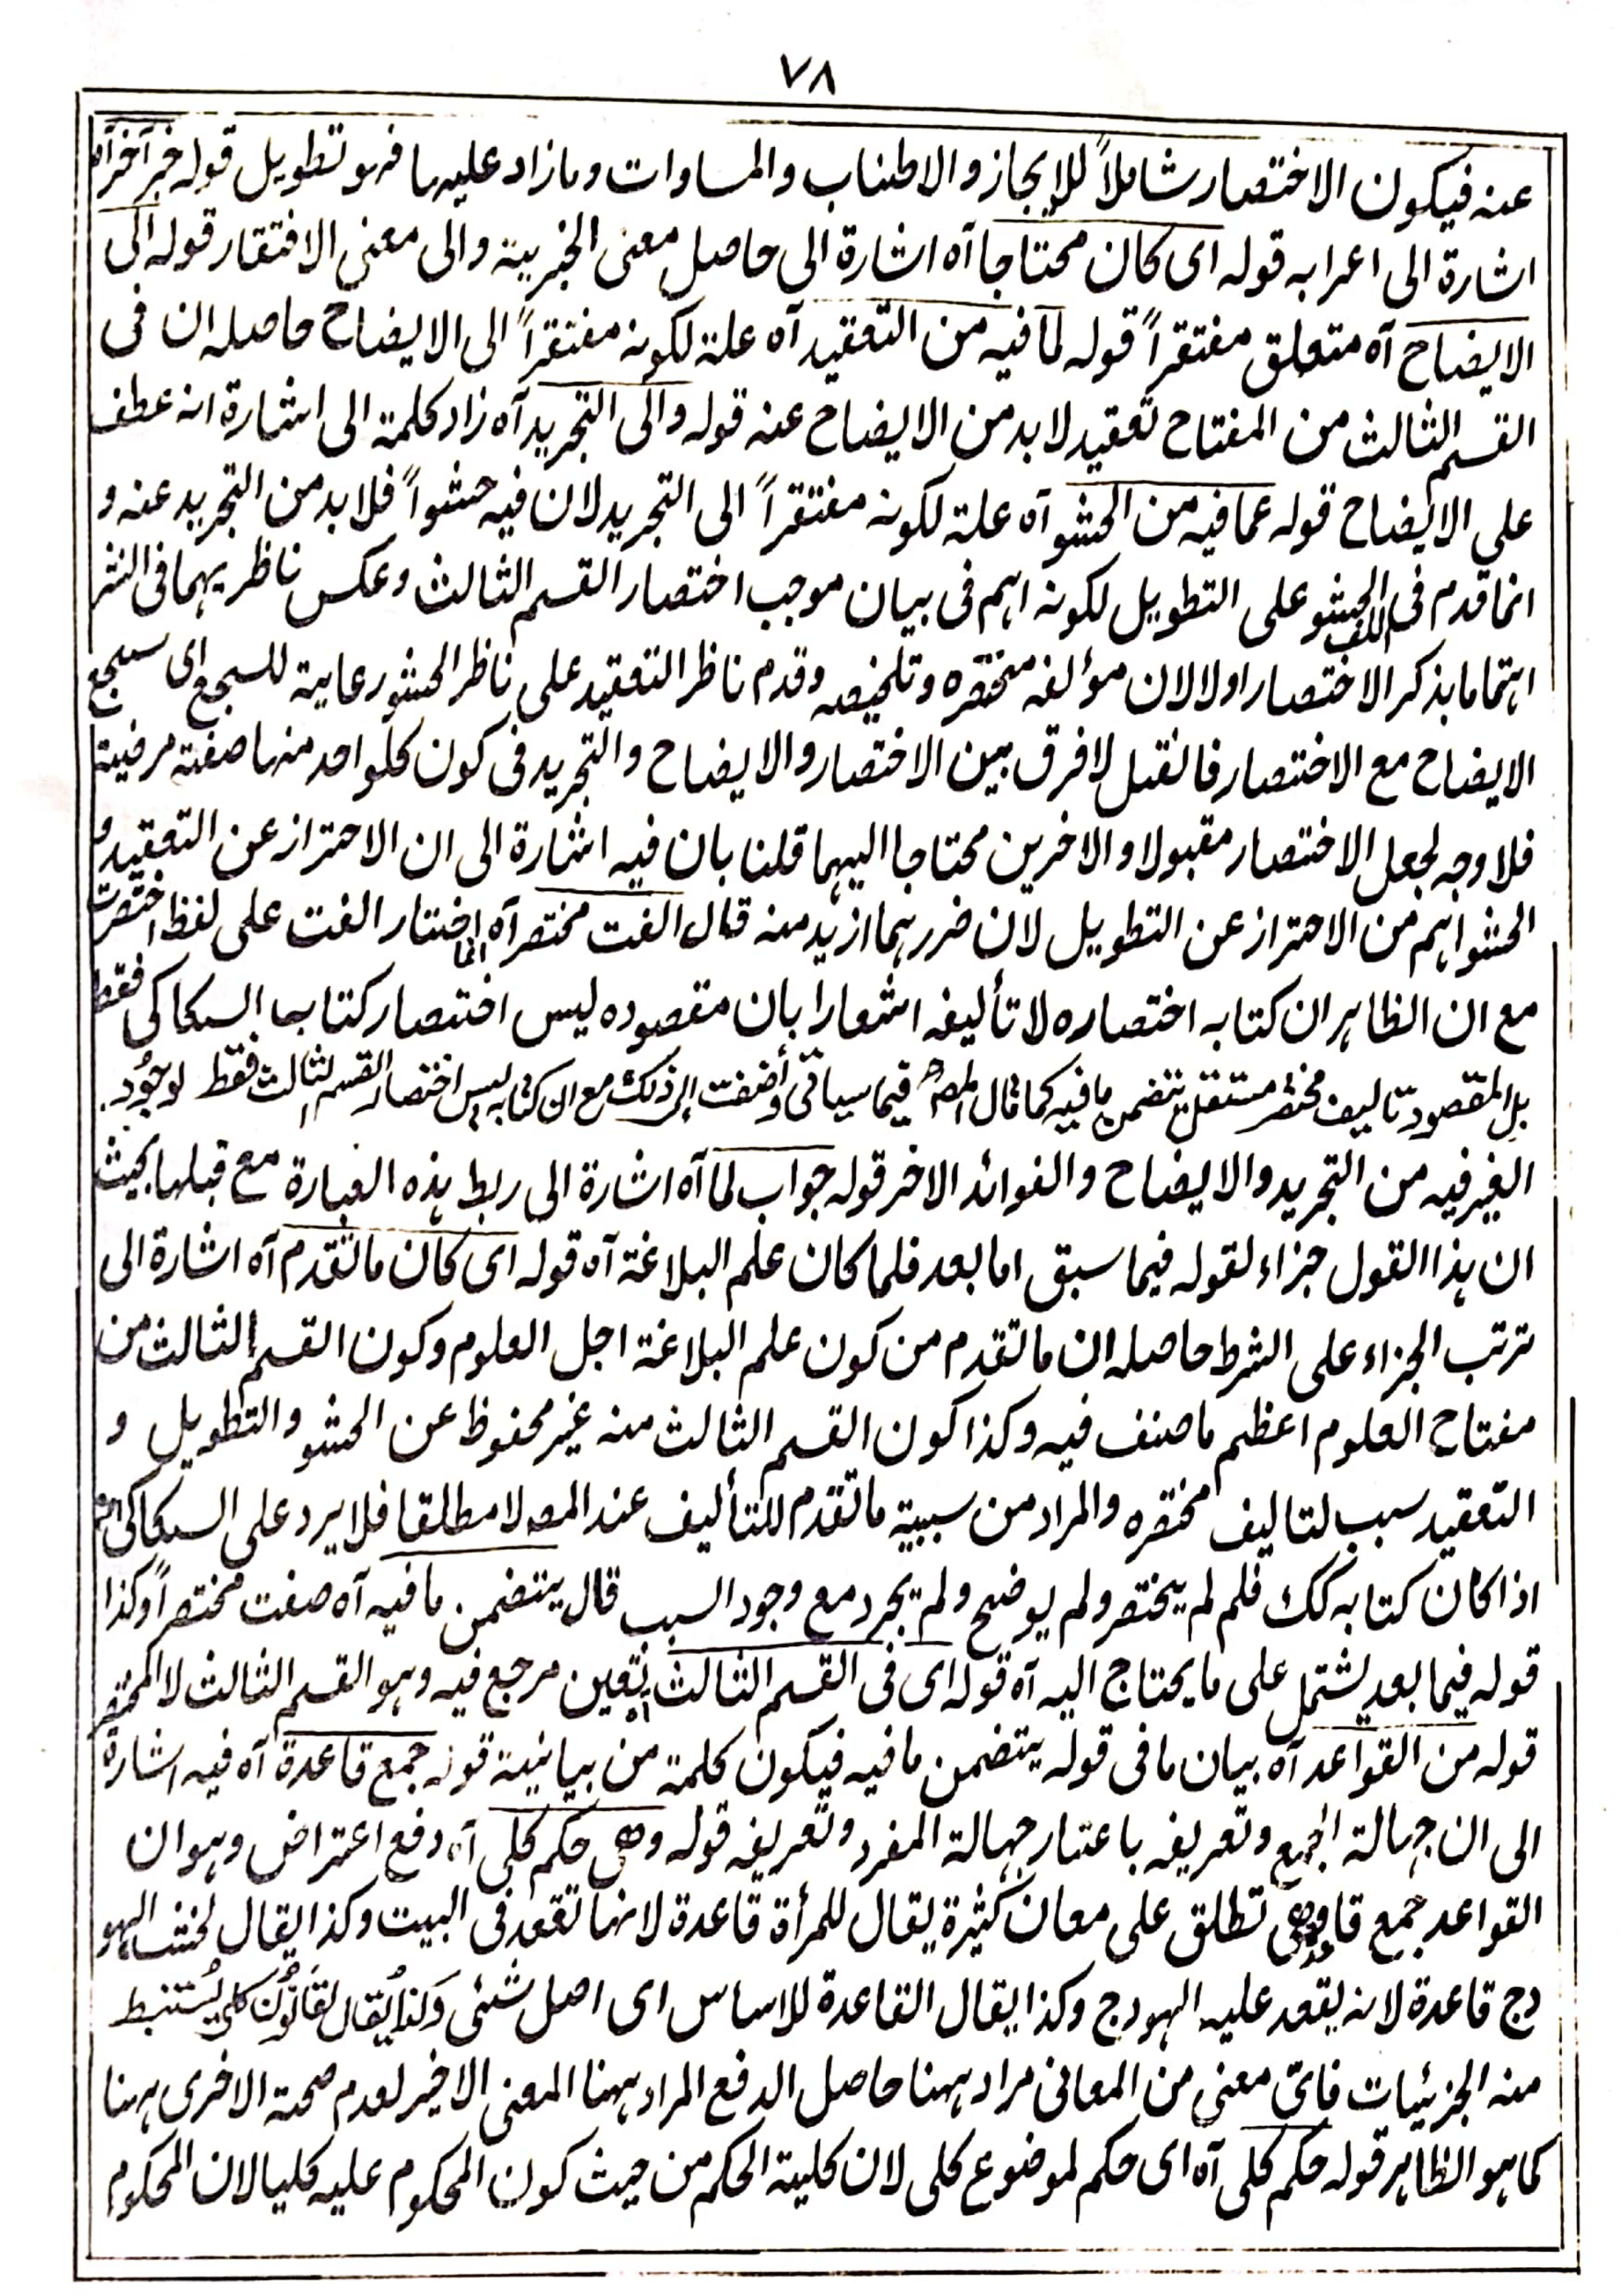 ٧٨
عنه فيكون الاختصار شاملاً للايجاز والاطناب والمساوات ومازاد عليها فهو تطويل قوله خبر آخر آه
اشارة الى اعرابه قوله اى كان محتاجا آه اشارة الى حاصل معنى الخبرية والى معنى الافتقار قوله الى
الايضاح آه متعلق مفتقراً قوله لما فيه من التعقيد آه علة لكونه مفتقراً الى الايضاح حاصله ان فى
القسم الثالث من المفتاح تعقيد لابد من الايضاح عنه قوله والى التجريد آه زاد كلمة الى اشارة انه عطف
على الايضاح قوله عما فيه من الحشو آه علة لكونه مفتقراً الى التجريد لان فيه حشواً فلابد من التجريد عنه و
انما قدم فى اللف الحشو على التطويل لكونه اهم فى بيان موجب اختصار القسم الثالث وعكس ناظريهما فى النشر
اهتماما بذكر الاختصار اولا لان مؤلفه مختصره وتلخيصه وقدم ناظر التعقيد على ناظر الحشو رعاية للسجع اى سجع
الايضاح مع الاختصار فانقيل لافرق بين الاختصار والايضاح والتجريد فى كون كلواحد منها صفة مرضية
فلا وجه لجعل الاختصار مقبولا والاخرين محتاجا اليهما قلنا بان فيه اشارة الى ان الاحتراز عن التعقيد و
الحشو اهم من الاحتراز عن التطويل لان ضررهما ازيد منه قال الفت مختصر آه انما اختار الفت على لفظ اختصرت
مع ان الظاهر ان كتابه اختصاره لا تأليفه اشعارا بان مقصوده ليس اختصار كتاب السكاكى فقط
بل المقصود تاليف مختصر مستقل يتضمن ما فيه كما قال المصـ فيما سياتى وأضفت الى ذلك مع ان كتابه ليس اختصار القسم الثالث فقط لوجُود
الغير فيه من التجريد والايضاح والفوائد الاخر قوله جواب لما آه اشارة الى ربط هذه العبارة مع قبلها بحيث
ان هذا القول جزاء لقوله فيما سبق اما بعد فلما كان علم البلاغة آه قوله اى كان ما تقدم آه اشارة الى
ترتب الجزاء على الشرط حاصله ان ما تقدم من كون علم البلاغة اجل العلوم وكون القسم الثالث من
مفتاح العلوم اعظم ما صنف فيه وكذا كون القسم الثالث منه غير محفوظ عن الحشو والتطويل و
التعقيد سبب لتاليف مختصره والمراد من سببية ما تقدم للتأليف عند المصـ لا مطلقا فلا يرد على السكاكى
اذا كان كتابه كك فلم لم يختصر ولم يوضح ولم يجرد مع وجود السبب قال يتضمن ما فيه آه صفت مختصراً وكذا
قوله فيما بعد يشتمل على ما يحتاج اليه آه قوله اى فى القسم الثالث آه تعين مرجع فيه وهو القسم الثالث لا المختصر
قوله من القواعد آه بيان ما فى قوله يتضمن ما فيه فيكون كلمة من بيانية قوله جمع قاعدة آه فيه اشارة
الى ان جهالة الجمع وتعريفه باعتبار جهالة المفرد وتعريفه قوله وهى حكم كلى آه دفع اعتراض وهو ان
القواعد جمع قاعدة وهى تطلق على معان كثيرة يقال للمرأة قاعدة لانها تقعد فى البيت وكذا يقال لخشب الهو
دج قاعدة لانه يقعد عليه الهودج وكذا يقال القاعدة للاساس اى اصل شئى وكذا يُقال لقانُون كلى يُستنبط
منه الجزئيات فاىّ معنى من المعانى مراد ههنا حاصل الدفع المراد ههنا المعنى الاخير لعدم صحة الاخرى ههنا
كما هو الظاهر قوله حكم كلى آه اى حكم لموضوع كلى لان كلية الحكم من حيث كون المحكوم عليه كليا لان المحكوم